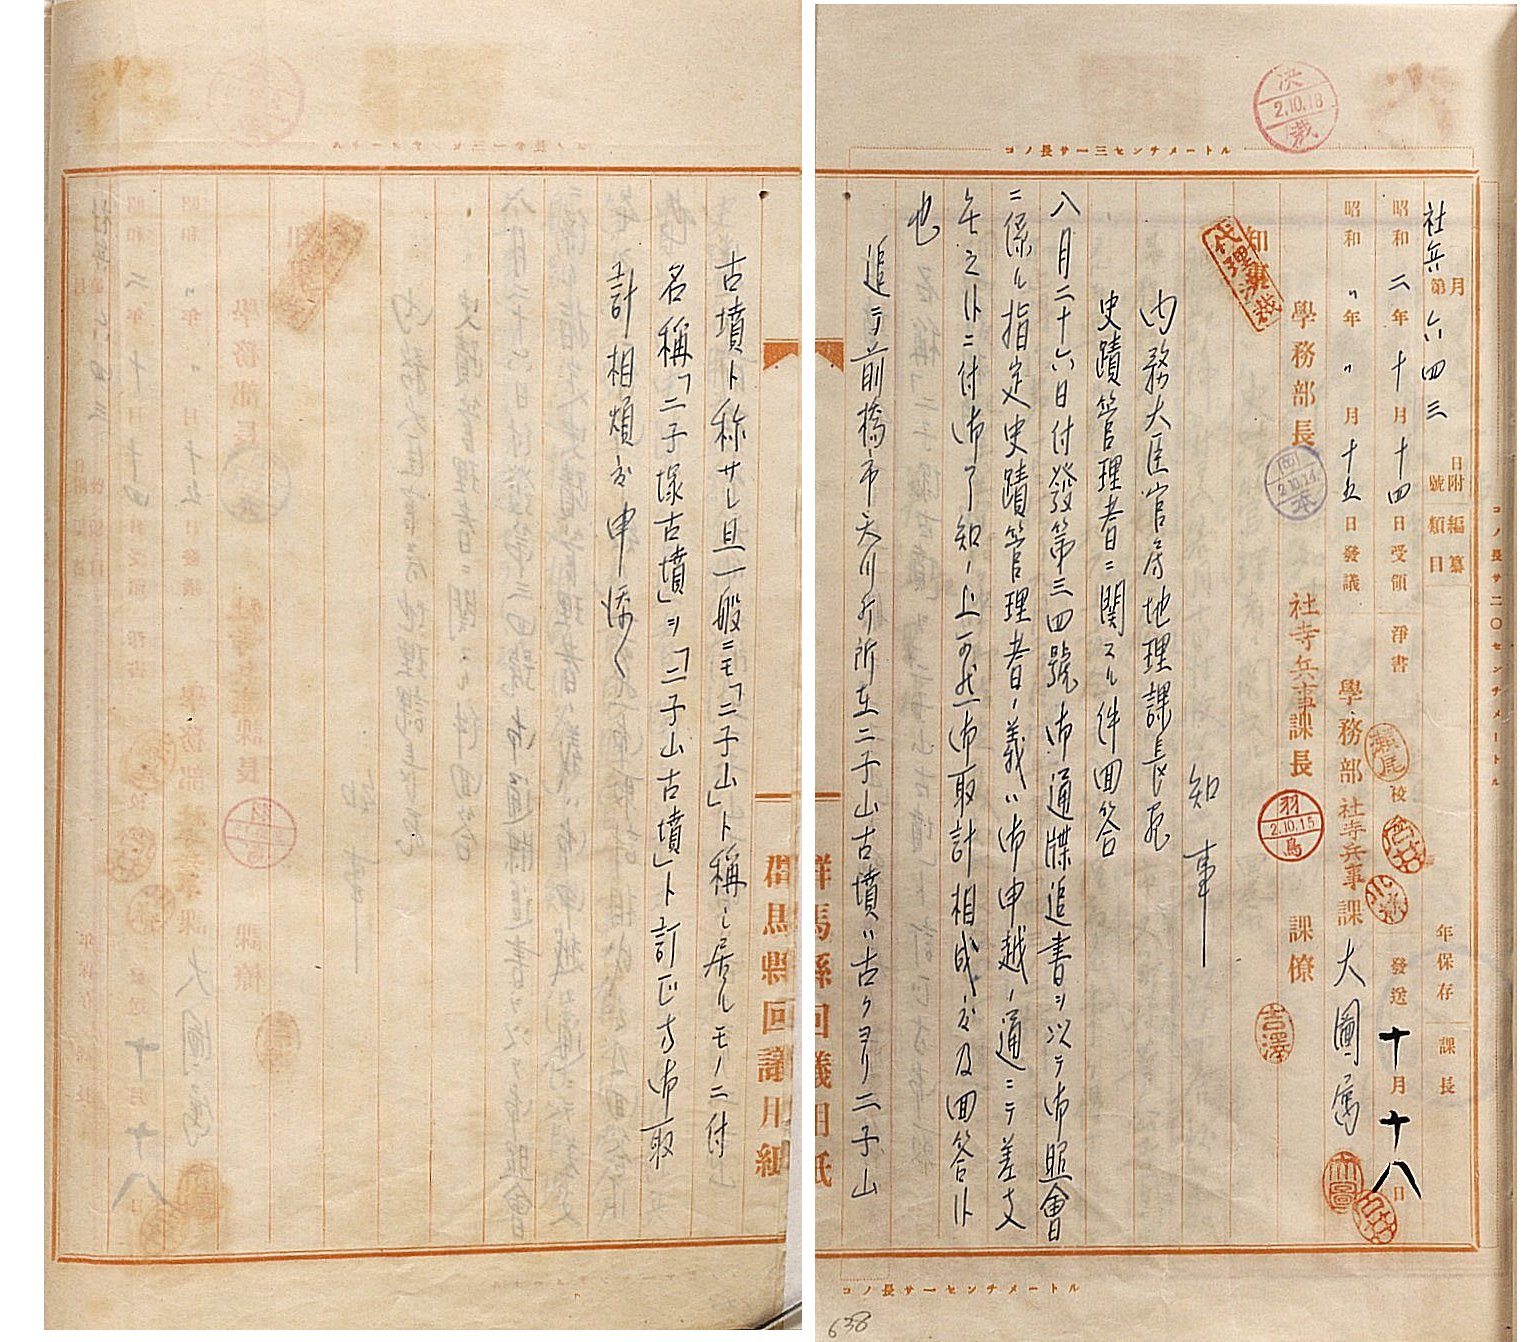 決裁
2.10.18
コノ長サ一三センチメートル
コノ長サ二〇センチメートル
月 日附 編纂
社兵第六四三號 類目
年保存 課長
昭和二年十月十四日受領 淨書 瀬尾 校 發送十月十八日
昭和〃年〃月十五日發議 學務部社寺兵事課 大圖属
學務部長 社寺兵事課長 課僚
2.10.14
羽鳥
2.10.15
吉澤
知事 代理済裁
知事
内務大臣官房地理課長宛
史蹟管理者ニ関スル件回答
八月二十六日付發第三四號御通牒追書ヲ以テ御照會
ニ係ル指定史蹟管理者ノ義ハ御申越ノ通ニテ差支
無之候ニ付御了知ノ上可然御取計相成度及回答候
也
追テ前橋市天川町所在二子山古墳ハ古クヨリ二子山
コノ長サ一センチメートル
638
群馬縣回議用紙
古墳ト称サレ且一般ニモ「二子山」ト稱シ居ルモノニ付
名稱「二子塚古墳」ヲ「二子山古墳」ト訂正方御取
計相煩度申添候
群馬縣回議用紙